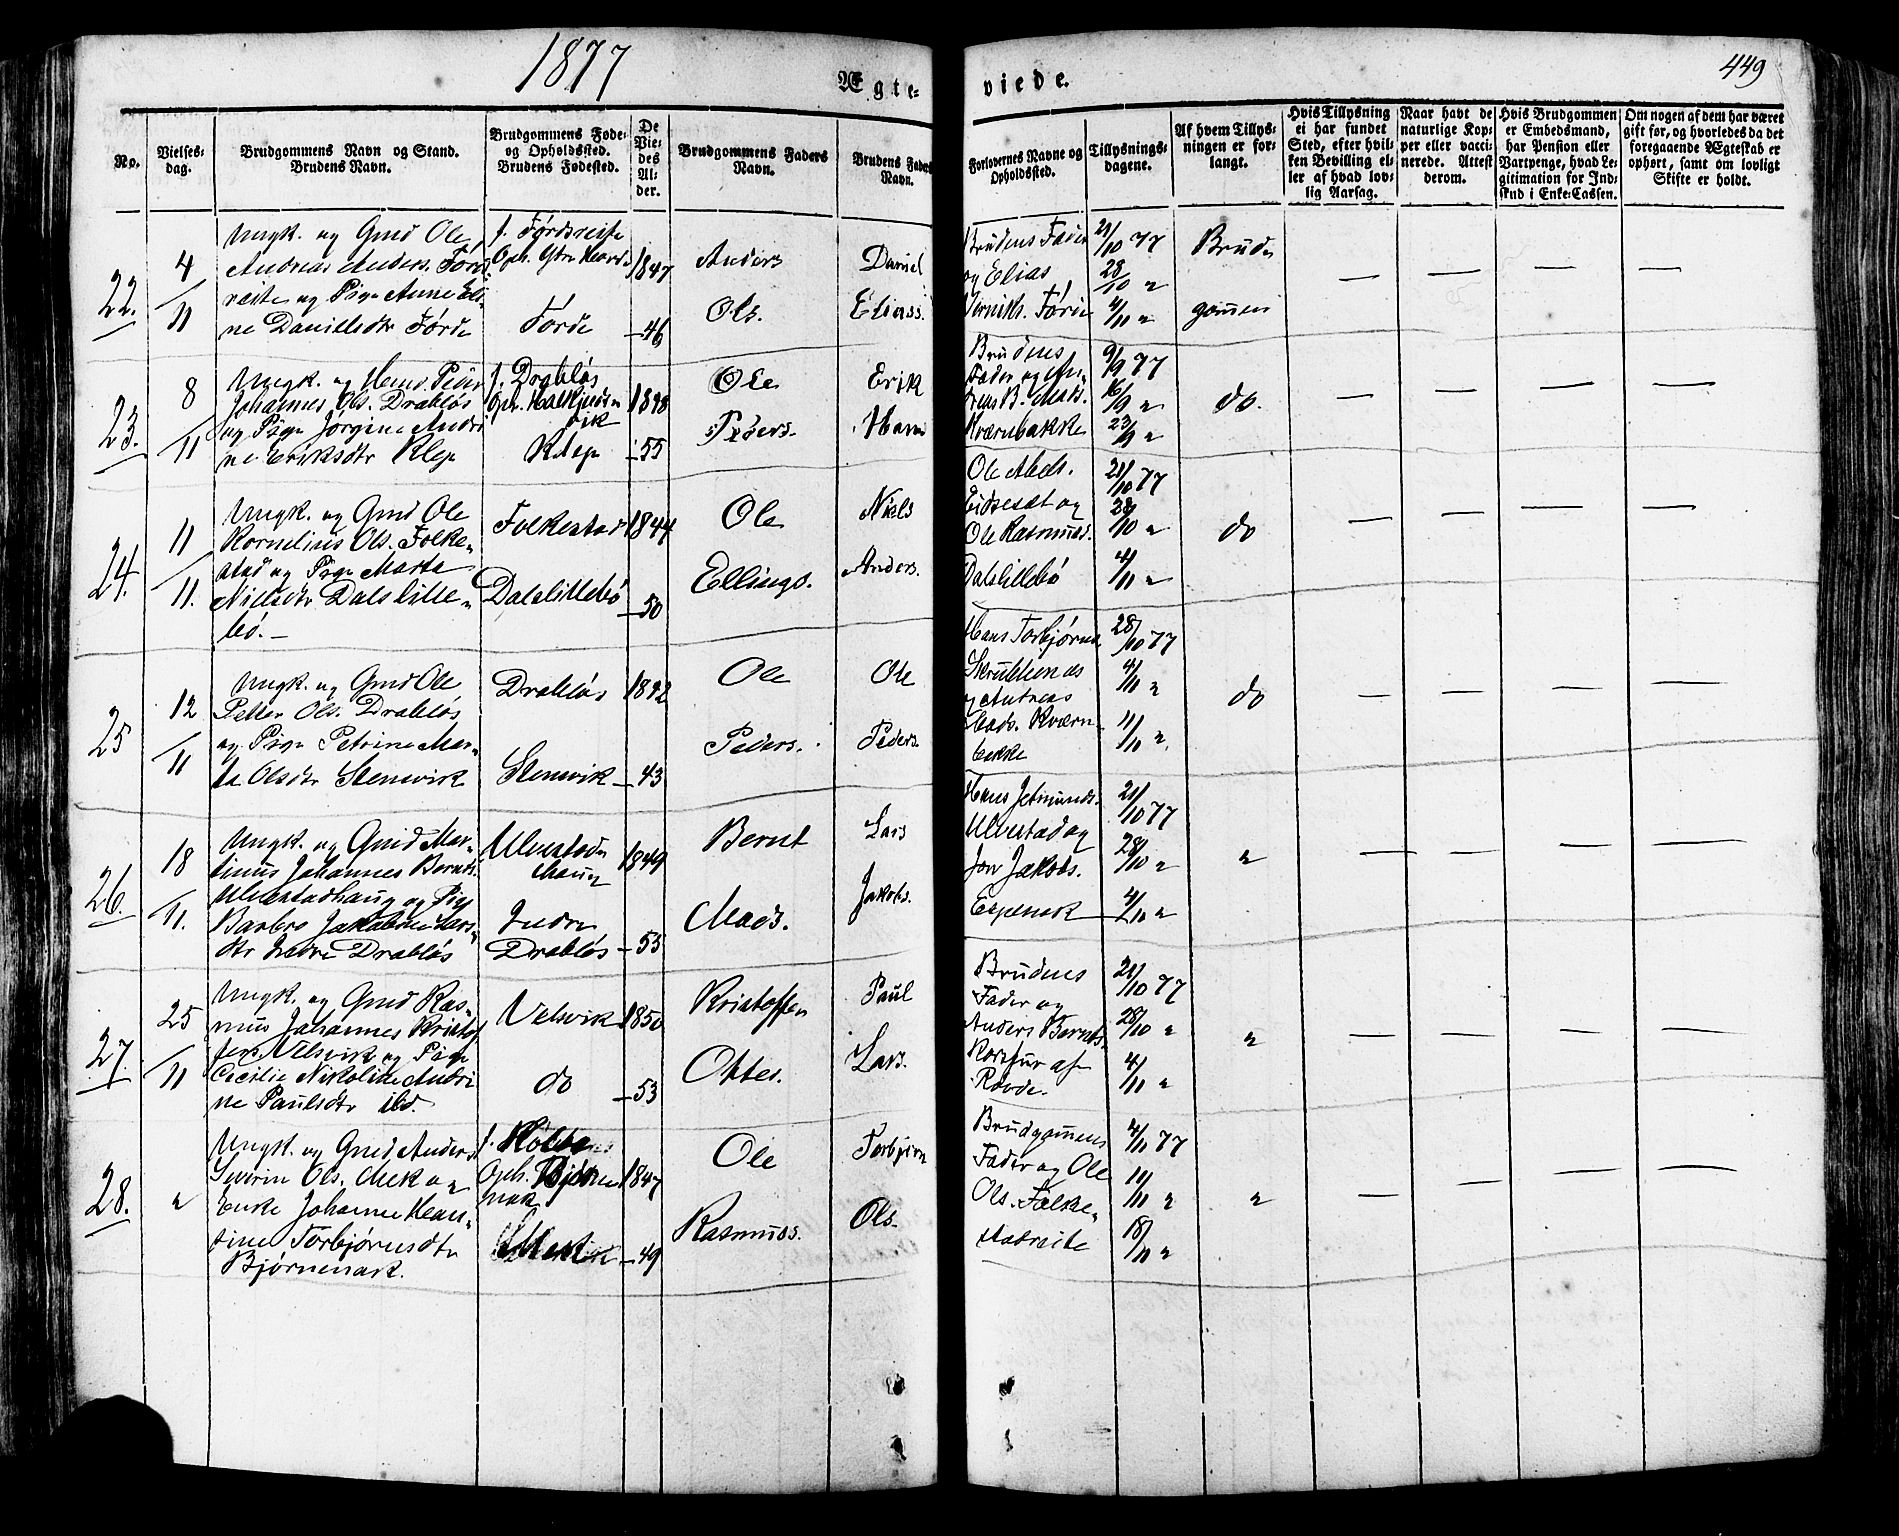 1877
449
Ægte-
viede.
No.
Vielses-
dag.
Brudgommens Navn og Stand.
Brudens Navn.
Brudgommens Føde-
og Opholdssted.
Brudens Fødested.
De
Vie-
des
Al-
der.
Brudgommens Faders
Navn.
Brudens Faders
Navn.
Forlovernes Navne og
Opholdssted.
Tillysnings-
dagene.
Af hvem Tillys-
ningen er for-
langt.
Hvis Tillysning
ei har fundet
Sted, efter hvil-
ken Bevilling el-
ler af hvad lov-
lig Aarsag.
Naar havt de
naturlige Kop-
per eller vacci-
nerede. Attest
derom.
Hvis Brudgommen
er Embedsmand,
har Pension eller
Vartpenge, hvad Le-
gitimation for Ind-
skud i Enke-Cassen.
Om nogen af dem har været
gift før, og hvorledes da det
foregaaende Ægteskab er
ophørt, samt om lovligt
Skifte er holdt.
22.
4/11
Ungk. og Gmd Ole
Andreas Anders. Førds
reite og Pige Anne Eli
ne Danielsdtr Førde
f. Førdsreite
Oph. Ytre
Førde
1847
—46
Anders
Ols.
Daniel
Eliass.
Brudens Fader
og Elias
Førde
21/10 77
28/10 "
4/11 "
Brud
gommen
23.
8/11
Ungk. og Peder
Johannes Ols. Drabløs
og Pige Jørgine Andri
ne Eriksdtr Klep
f. Drabløs
Oph.
vik
Klep
1848
—55
Ole
Peders.
Erik
Hans
Brudens
Fader og An-
dreas B. Mads.
Kværnbakke
9/9 77
16/9 "
23/9 "
do.
24.
11/11.
Ungk. og Gmd Ole
Kornelius Ols. Folke-
stad og Pige Marta
Nielsdtr Dalslille-
bø. —
Folkestad
Dalslillebø
1844
—50
Ole
Ellings.
Niels
Anders.
Ole Abels.
Eidseset og
Ole Rasmuss.
Dalslillebø
21/10 77
28/10 "
4/11 "
do
25
12/11
Ungk. og Gmd Ole
Petter Ols. Drabløs
og Pige Petrine Mar-
ta Olsdtr Stensvik
Drabløs
Stensvik
1842
—43
Ole
Peders.
Ole
Peders.
Hans Torbjørns.
og Andreas
Mads. Kværn-
bakke
28/10 77
4/11 "
11/11 "
do
26.
18/11.
Ungk. og Gmd Mar-
tinus Johannes Bernts.
Ulvestadhaug og Pige
Barbro Jakobine Lars-
dtr Indre Drabløs
Ulvestad-
haug
Indre
Drabløs
1849
—55
Bernt
Mads.
Lars
Jakobs.
Hans Jetmunds.
Ulvestad og
Jon Jakobs.
Espenak
21/10 77
28/10 "
4/11 "
"
27.
25/11
Ungk. og Gmd Ras-
mus Johannes Kristof
fers. Velsvik og Pige
Cecilie Nikoline Andri
ne Paulsdtr ibd.
Velsvik
do
1850
—53
Kristoffer
Ottes.
Paul
Lars.
Brudens
Fader og
Anders Bernts.
Korsfur af
Rovde.
21/10 77
28/10 "
4/11 "
"
28.
"
Ungk. og Gmd Anders
Severin Ols. Mek og
Enke Johanne Han-
sine Torbjørnsdtr
Bjørnenak.
f.
Oph. Bjørne
nak
1847
—49
Ole
Rasmuss.
Torbjørn
Ols.
Brudgommens
Fader og Ole
Ols. Folke-
stadreite
4/11 77
11/11 "
18/11 "
"